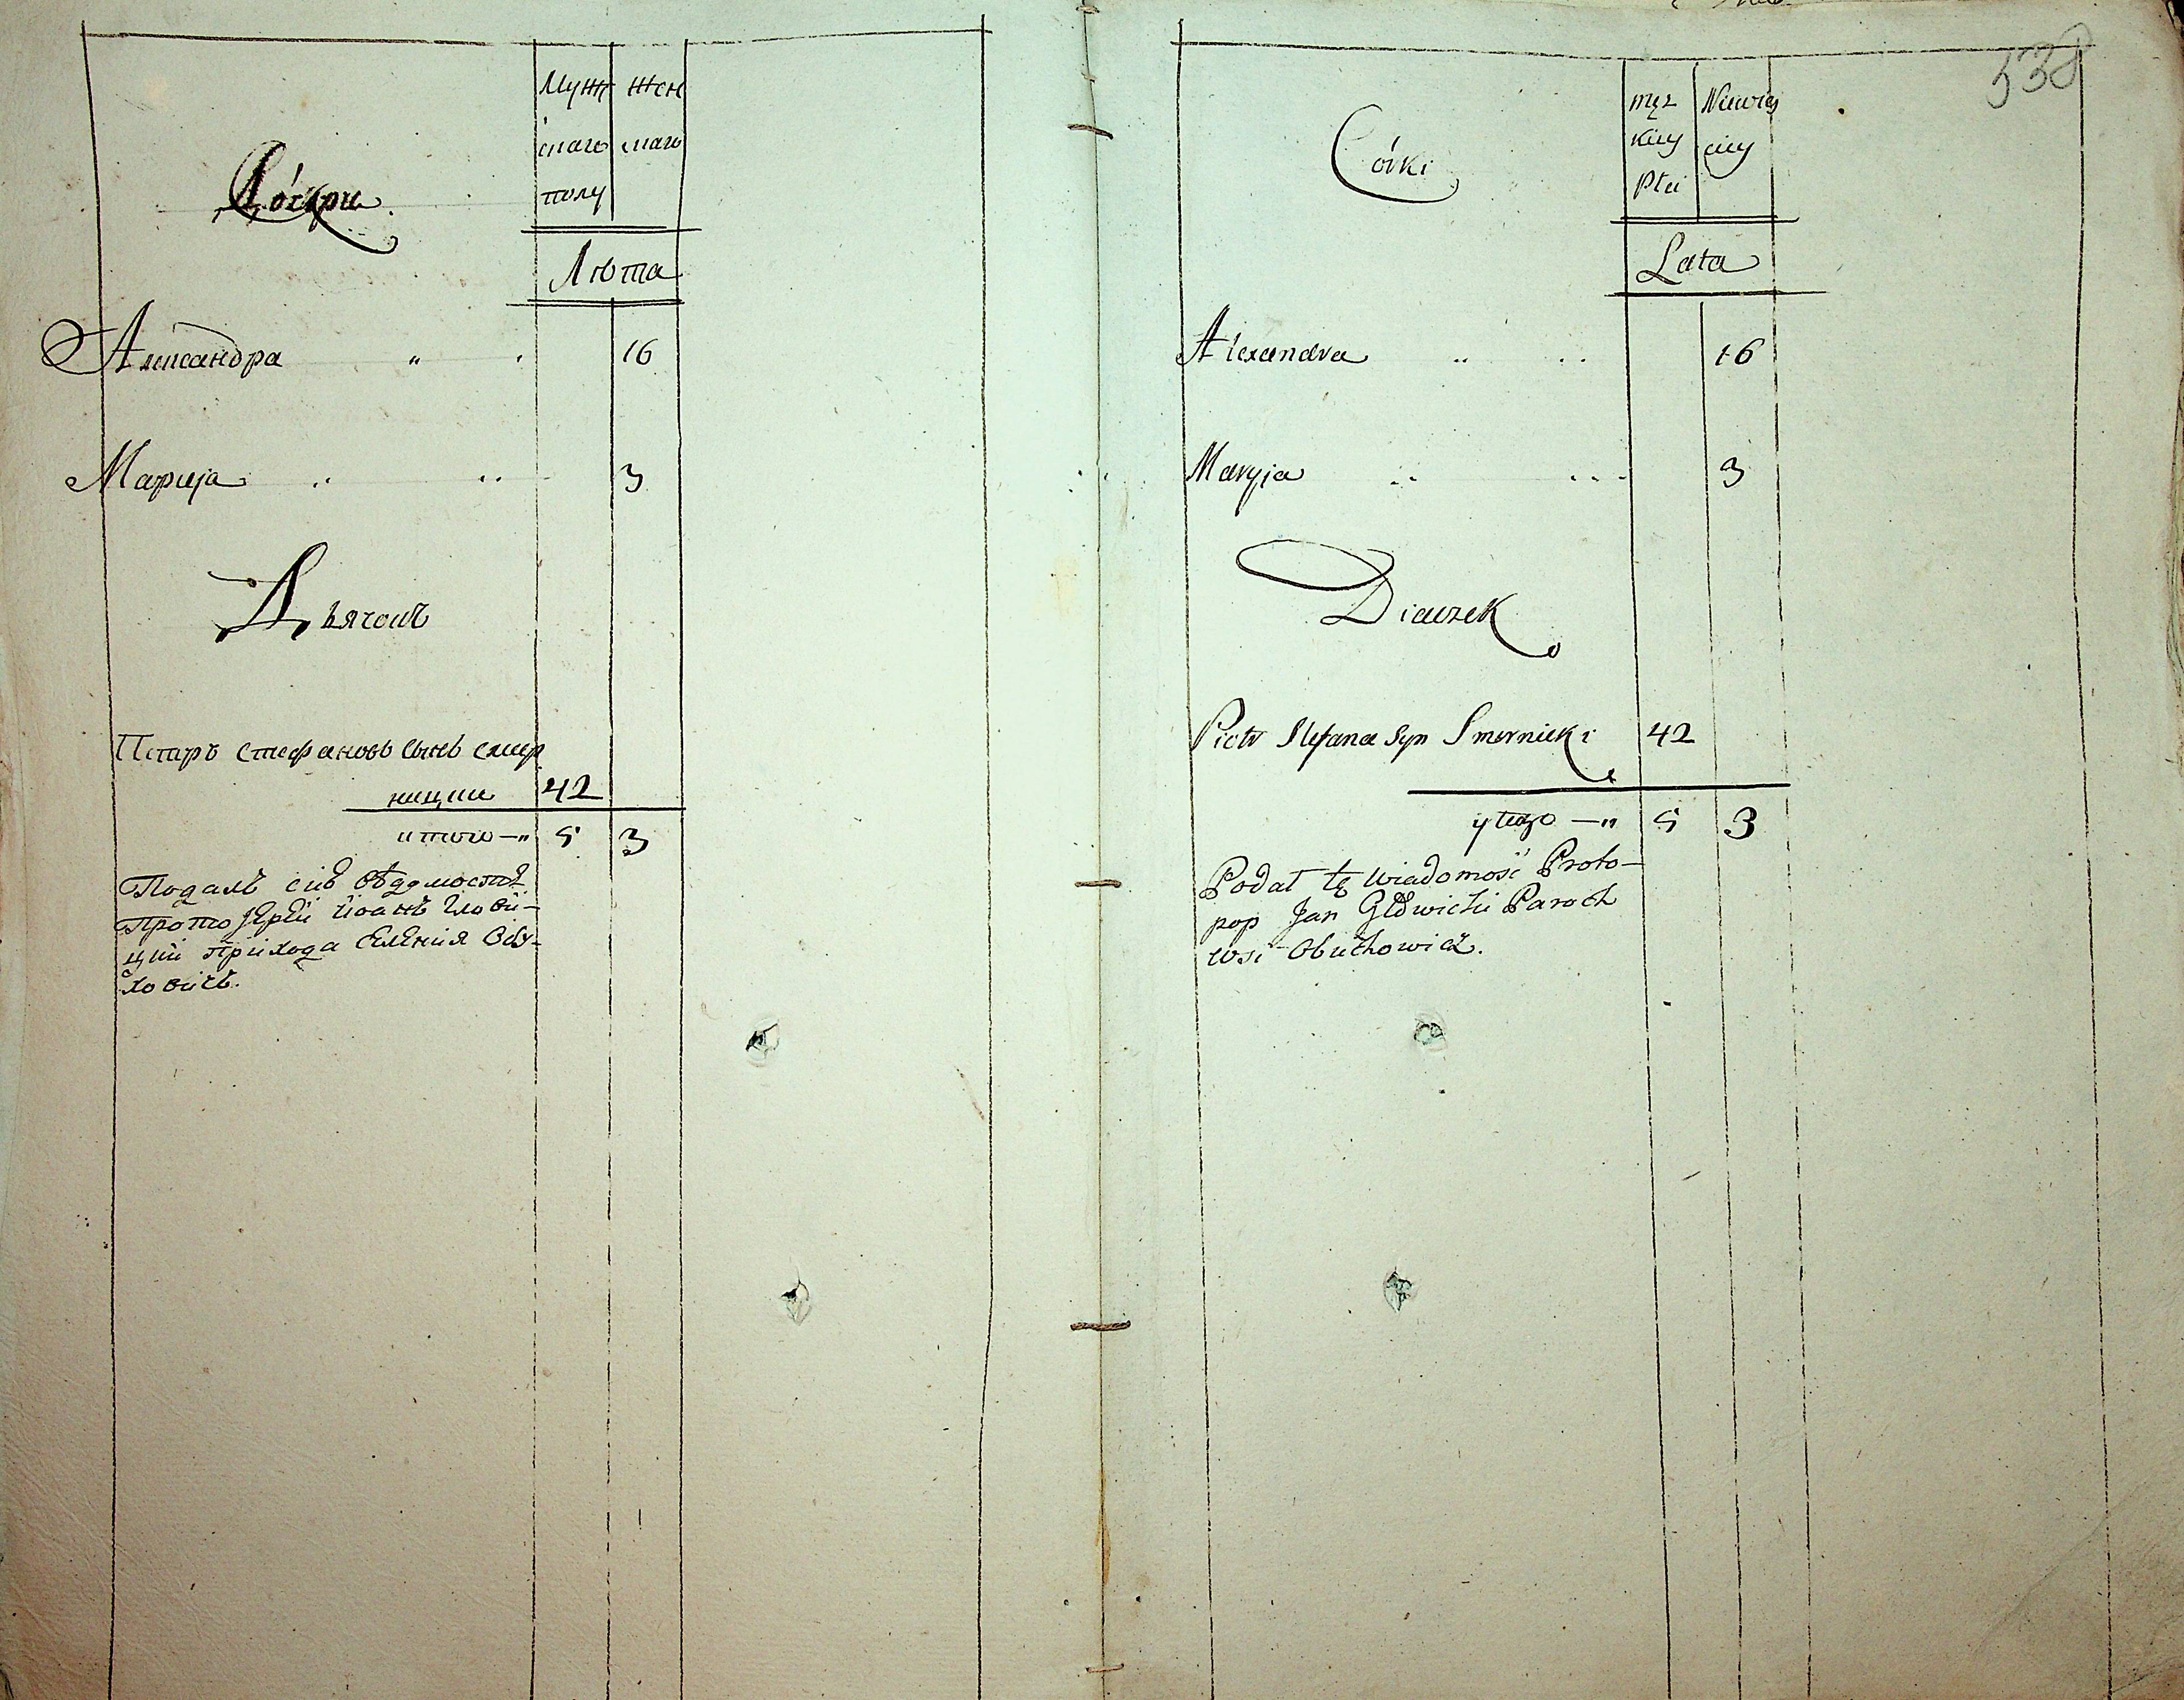 Дочери
Муж Жен
скаго скаго
полу
Лѣта
Александра " " 16
Мариja " " 3
Дьячокъ
Петръ Стефановъ сынъ Смер
ницки 42
итого —" 5 3
Подалъ сию вѣдомость
Протоjерей Иоанъ Глови-
цкий прихода селения Обу-
ховичъ.
538
Córki
męz Niewieś
kiey ciey
Płci
Lata
Alexandra " " 16
Maryja " " 3
Diaczek
Piotr Stefana Syn Smernicki 42
y tego —" 5 3
Podał tę wiadomość Proto-
pop Jan Głowicki Paroch
wsi Obuchowicz.